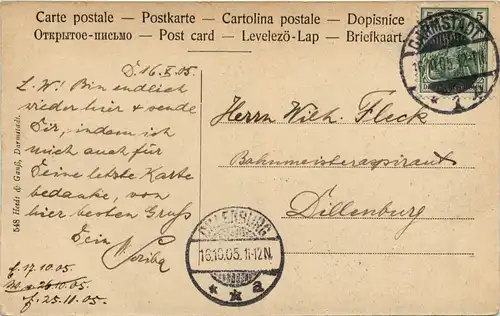 Carte postale — Postkarte — Cartolina postale — Dopisnice
Открытое-письмо — Post card — Levelező-Lap — Briefkaart.
D. 16.X.05.
L. W! Bin endlich
wieder hier & sende
Dir, indem ich
mich auch für
Deine letzte Karte
bedanke, von
hier besten Gruß
Dein
f. 17.10.05.
26.10.05.
f. 25.11.05.
Herrn Wilh. Fleck
Bahnmeisteraspirant
Dillenburg
DARMSTADT
5
DILLENBURG
16.10.05. 11-12N.
* * a
648 Henit & Gauß, Darmstadt.